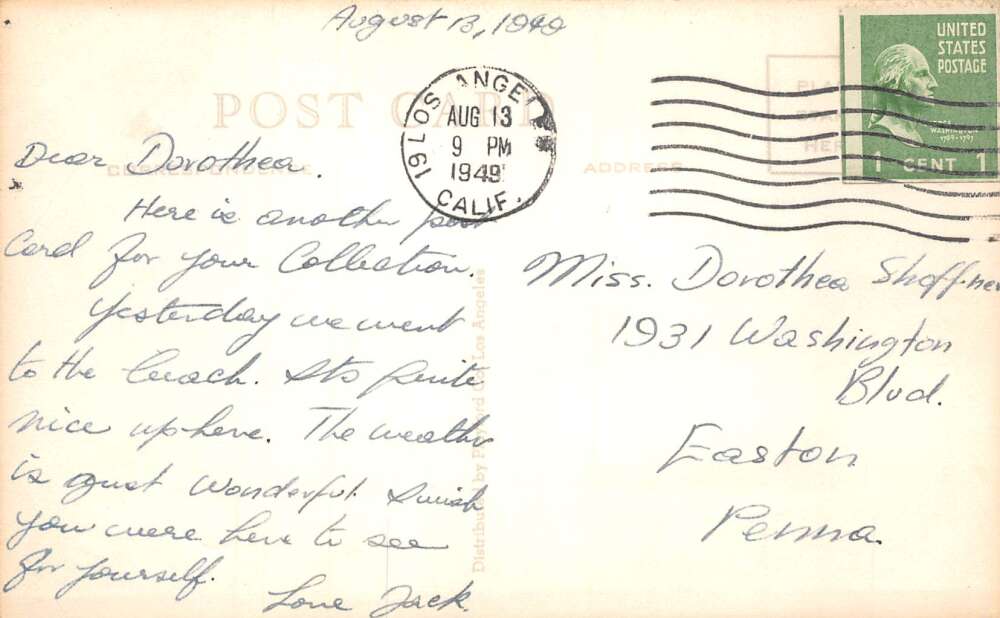 August 13, 1949
POST CARD
CORRESPONDENCE
ADDRESS
PLACE
STAMP
HERE
UNITED
STATES
POSTAGE
WASHINGTON
1789-1797
1 CENT 1
LOS ANGEL
AUG 13
9 PM
1949
CALIF.
197
Dear Dorothea.
Here is another post
Card for your Collection.
Yesterday we went
to the beach. Its quite
nice up here. The weather
is just wonderful. I wish
you were here to see
for yourself.
Love Jack.
Distributed by Los Angeles
Miss. Dorothea Shaffner
1931 Washington
Blvd.
Easton
Penna.